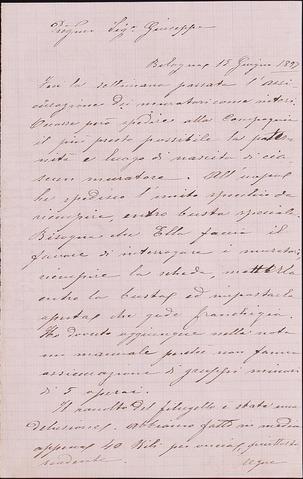 Pregmo Sigr Giuseppe
Bologna, 15 Giugno 1897
Fin la settimana passata l'assi-
curazione dei muratori come intesi.
Occorre però spedire alla Compagnia
il più presto possibile la pater-
nità e luogo di nascita di cia-
scun muratore. All'uopo
ho spedito l'unito specchio da
riempire, entro busta speciale.
Bisogna che Ella faccia il
favore di interrogare i muratori
riempire la scheda, metterla
entro la busta ed impostarla
aperta che gode franchigia.
Ho dovuto aggiungere nella nota
un manuale poiché non fanno
assicurazione di gruppi minori
di 5 operai.
Il raccolto del filugello è stata una
delusione. Abbiamo fatti in media
appena 40 Kili per oncia, piuttosto
scadente.